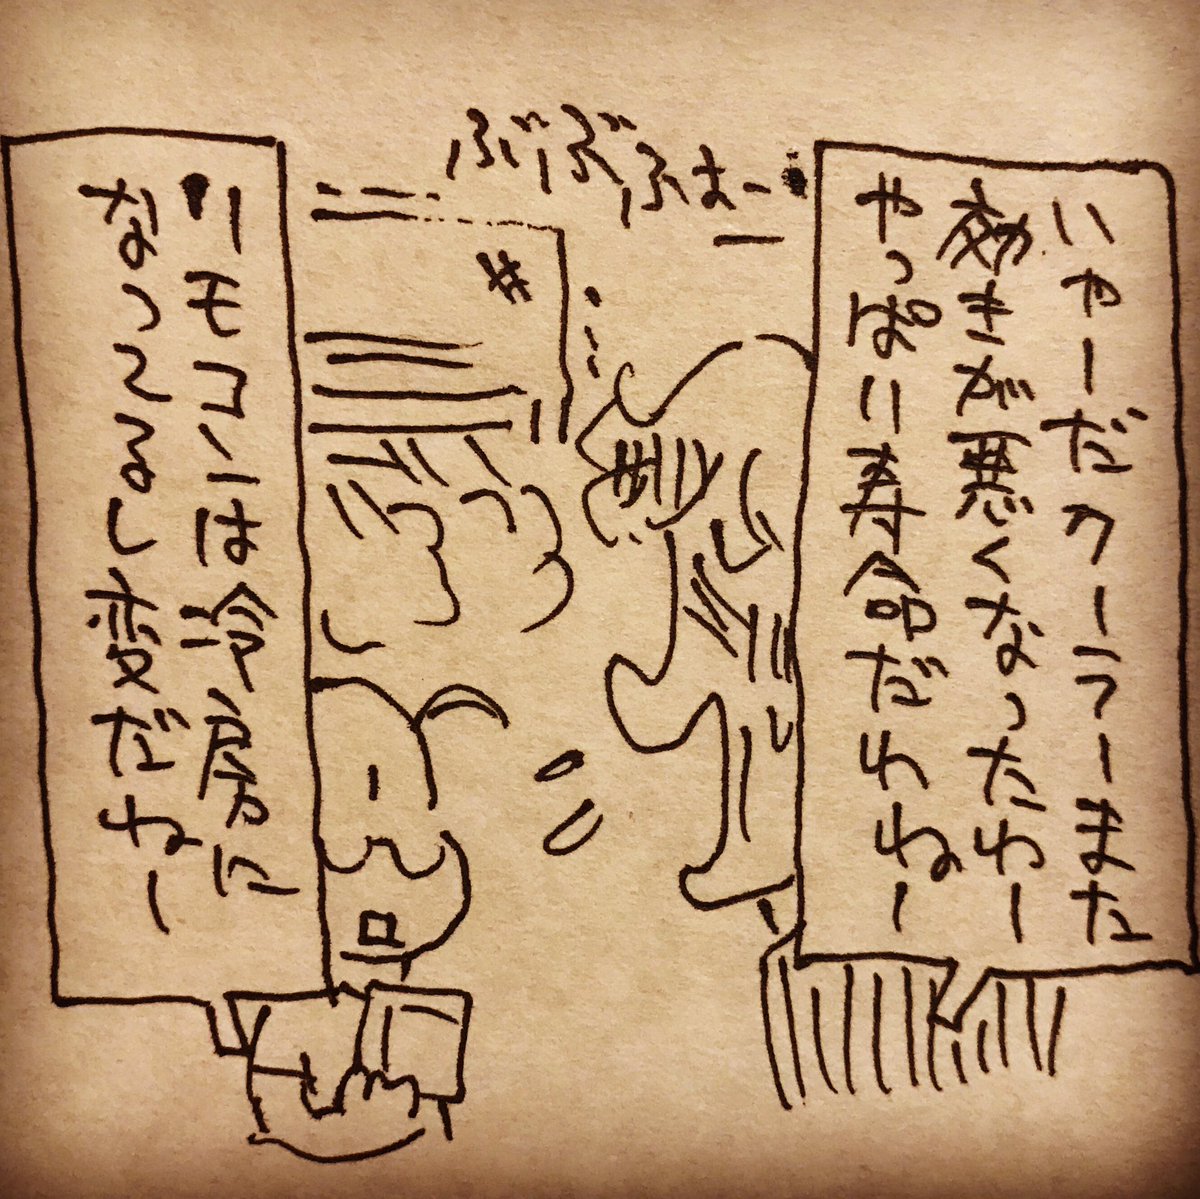 いやーだクーラーまた
効きが悪くなったわー
やっぱり寿命だわねー
ぶぶぶはー
リモコンは冷房に
なってるし変だねー